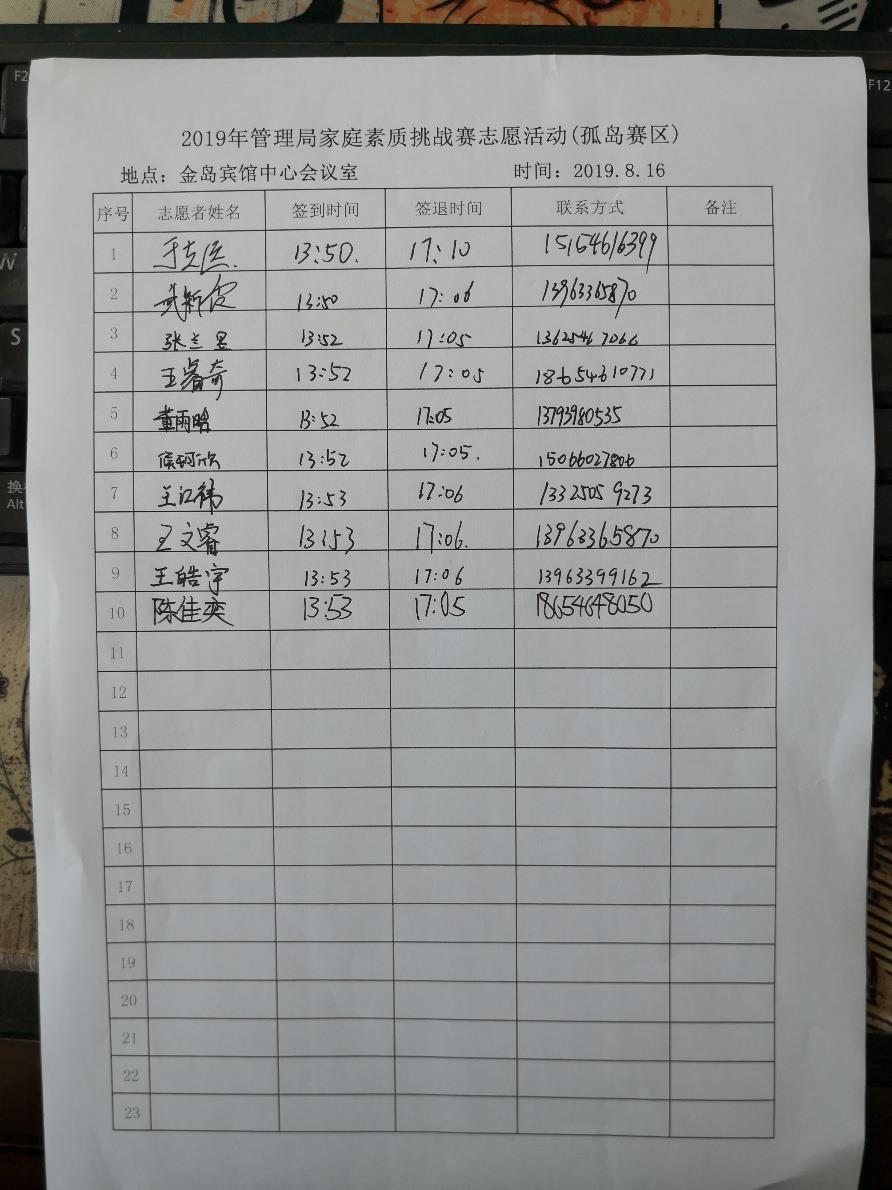 F2
F12
W
S
换
Alt
2019年管理局家庭素质挑战赛志愿活动(孤岛赛区)
地点：金岛宾馆中心会议室 时间：2019.8.16
序号 志愿者姓名 签到时间 签退时间 联系方式 备注
1 13:50. 17:10 15154616399
2 13:50 17:06 13963365870
3 张兰昱 13:52 17:05 13625467066
4 王睿奇 13:52 17:05 18654610771
5 董雨晗 13:52 17:05 13793980535
6 侯珂欣 13:52 17:05. 15066027806
7 兰江祎 13:53 17:06 13325059273
8 王文睿 13:53 17:06. 13963365870
9 王皓宇 13:53 17:06 13963399162
10 陈佳奕 13:53 17:05 18654648050
11
12
13
14
15
16
17
18
19
20
21
22
23